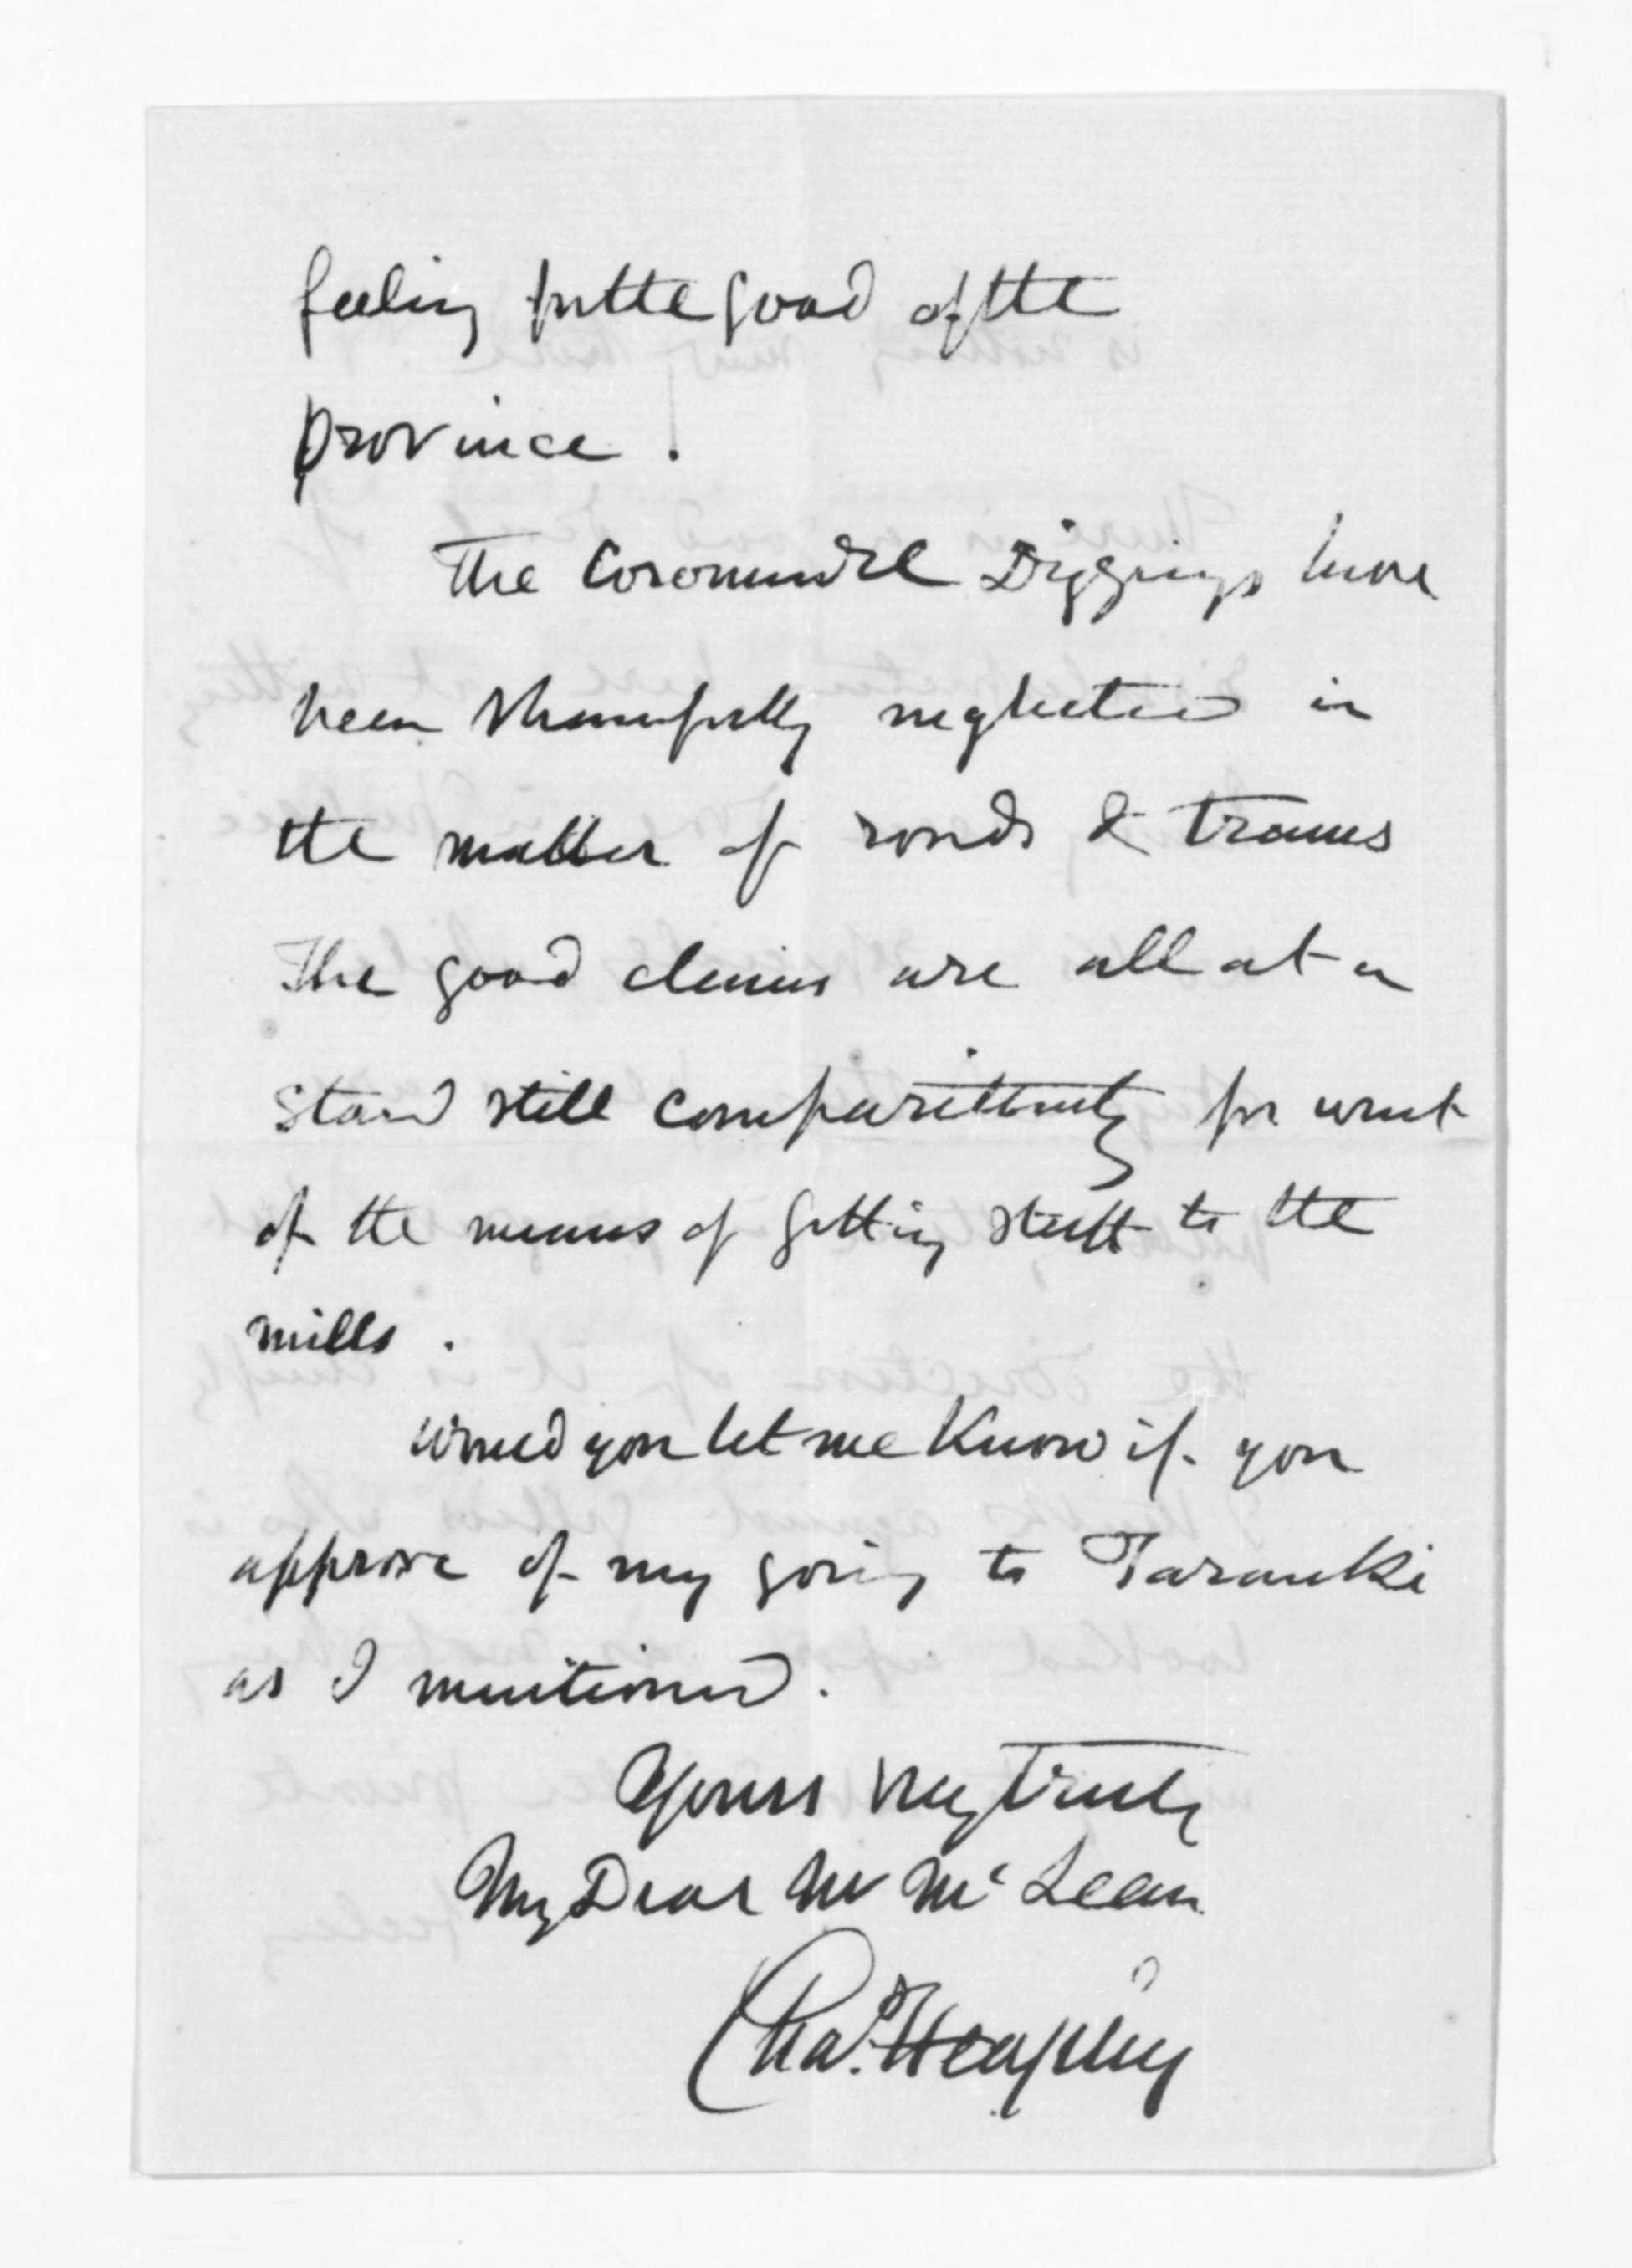 feeling for the good of the
province!
The Coromandel Diggings have
been shamefully neglected in
the matter of roads & trams
The good claims are all at a
stand still comparitively for want
of the means of getting stuff to the
mills.
Would you let me know if you
approve of my going to Taranki
as I mentioned.
Yours very truly
My Dear Mr McLean
Chas. Heaphy